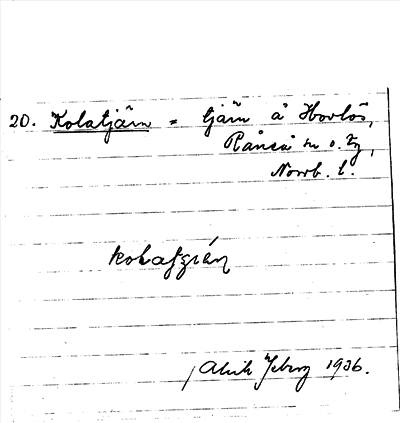 20. Kolatjärn = tjärn å Hovlös,
Råneå sn o. tg,
Norrb. l.
kolatjärn
Alvik Jeborg 1936.